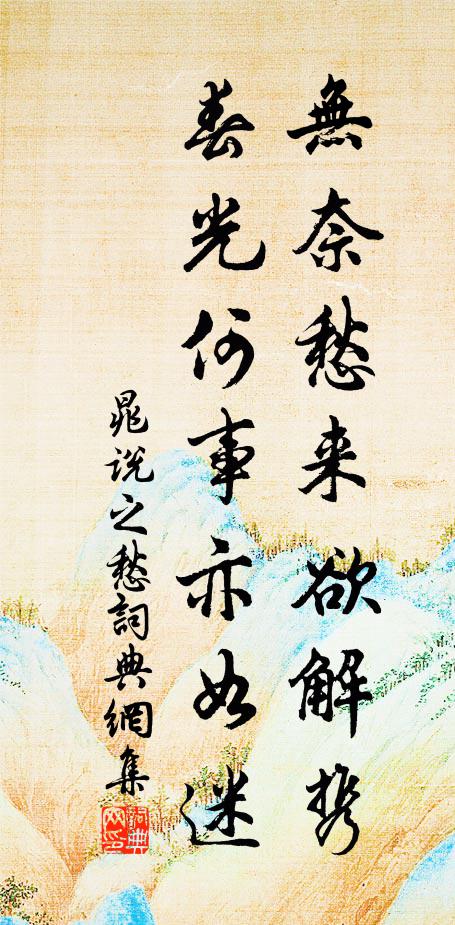 無奈愁来欲解携
春光何事亦如迷
晁说之愁詞典網集
詞典网印